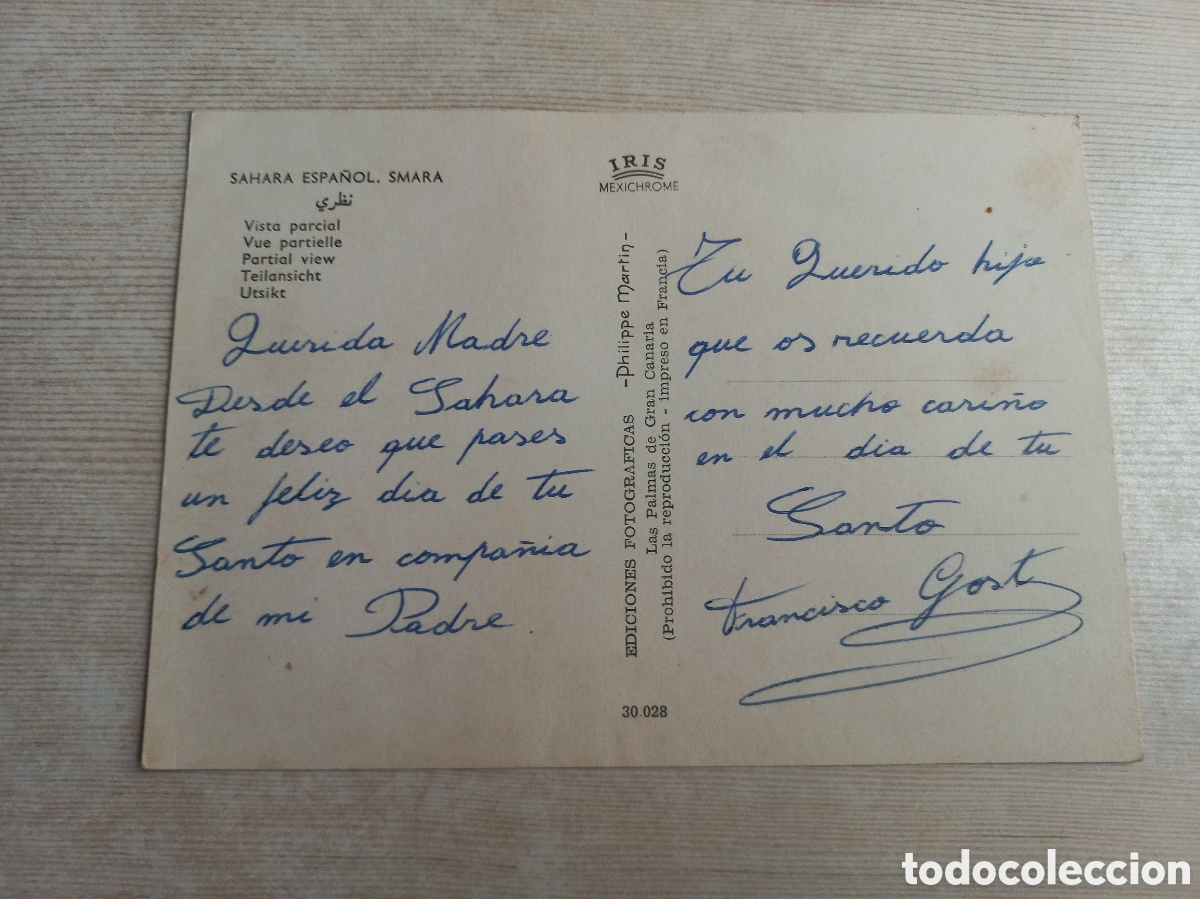 SAHARA ESPAÑOL. SMARA
نظري
Vista parcial
Vue partielle
Partial view
Teilansicht
Utsikt
Querida Madre
Desde el Sahara
te deseo que pases
un feliz dia de tu
Santo en compañia
de mi Padre
IRIS
MEXICHROME
EDICIONES FOTOGRAFICAS -Philippe Martin-
Las Palmas de Gran Canaria
(Prohibido la reproducción - impreso en Francia)
30.028
Tu Querido hijo
que os recuerda
con mucho cariño
en el dia de tu
Santo
Francisco Gost
todocoleccion